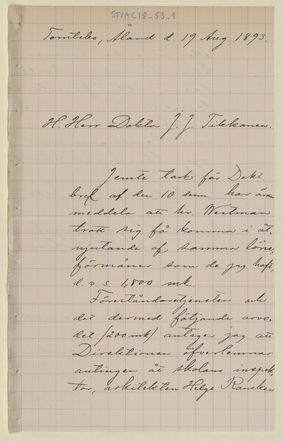 STIAC18_53_1
Tomtebo, Åland d. 19 Aug. 1893.
H. Herr Doktor J. J. Tikkanen.
Jemte tack för Dokt
bref af den 10 denn. har äran
meddela att hr Westman
trott sig få komma i åt-
njutande af samma löne-
förmåner som de jag haft,
d. v. s. 1,800 mk.
Föreståndaretjensten och
det dermed följande arvo-
det (200 mk) antager jag att
Direktionen öfverlemnar
antingen åt skolans inspek-
tor, arkitekten Helge Rancken